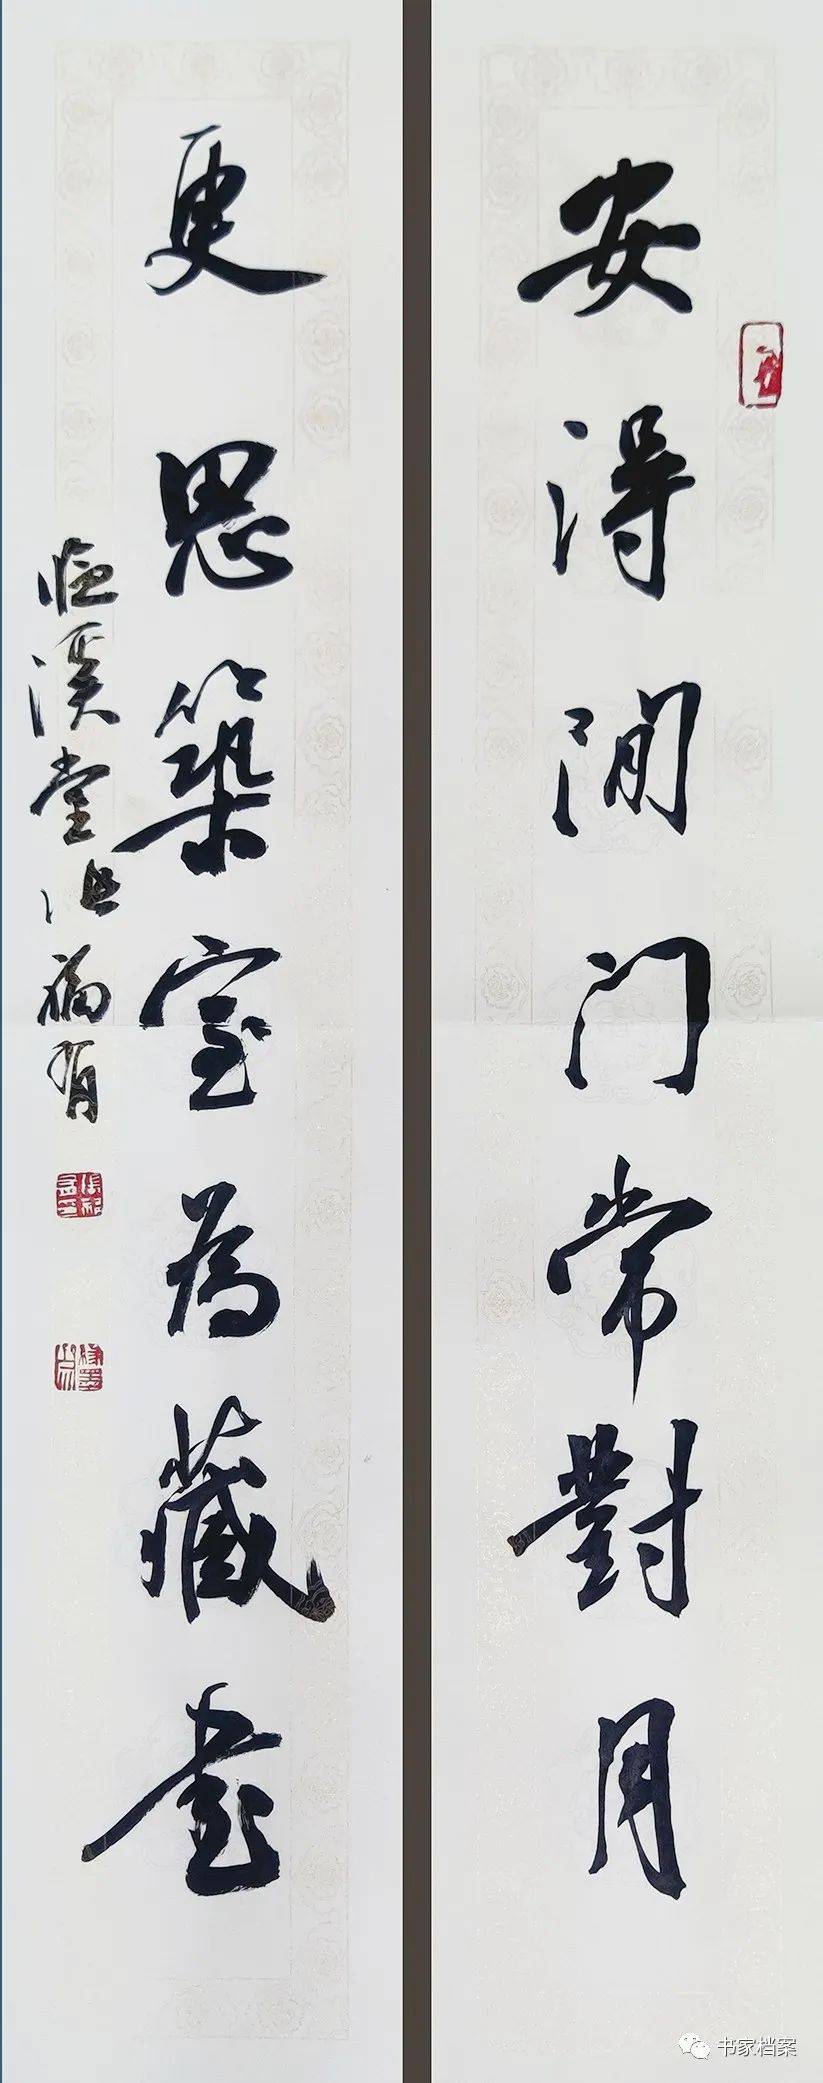 安得閒门常對月
更思築室為藏書
臨溪堂福有
书家档案